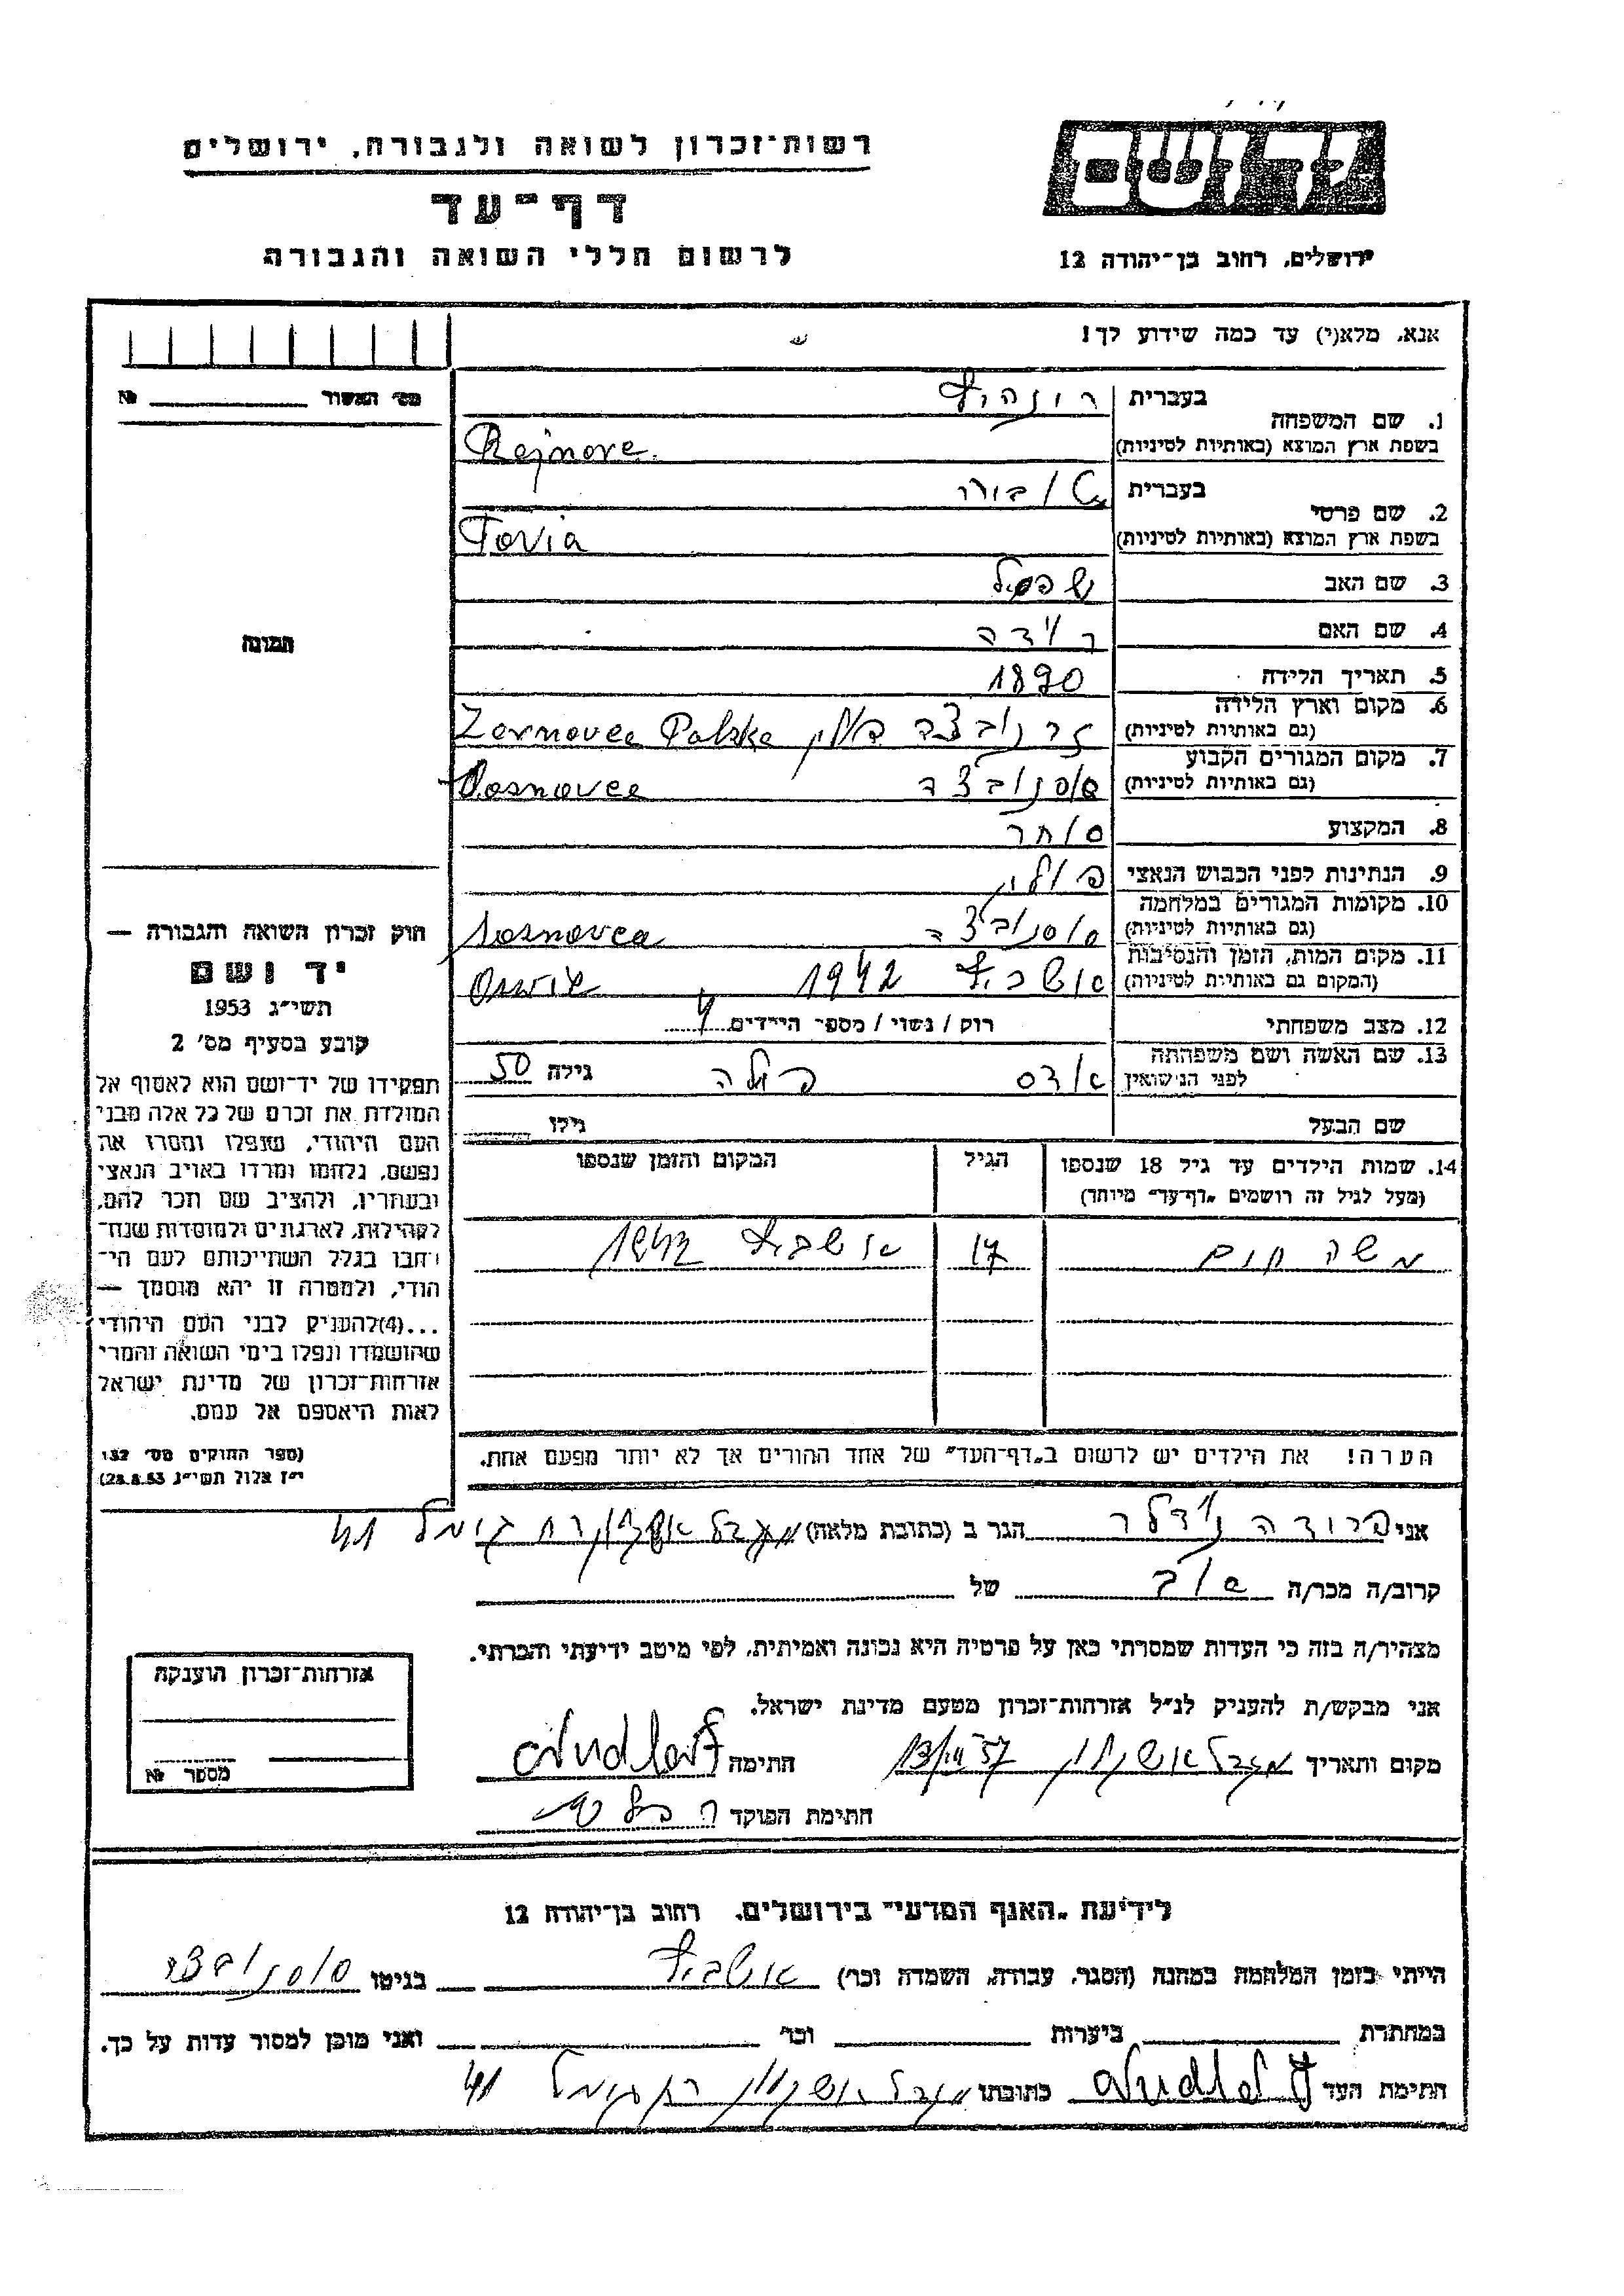 רשות־זכרון לשואה ולגבורה, ירושלים
דף־עד
לרשום חללי השואה והגבורה
ירושלים, רחוב בן־יהודה 12
אנא, מלא(י) עד כמה שידוע לך!
מס' האשור №
1. שם המשפחה
בעברית
בשפת ארץ המוצא (באותיות לטיניות) Rejnove
2. שם פרטי
בעברית
בשפת ארץ המוצא (באותיות לטיניות) Tovia
3. שם האב
4. שם האם
5. תאריך הלידה 1890
6. מקום וארץ הלידה
(גם באותיות לטיניות) זרנובצה פולין Zernovce Polska
7. מקום המגורים הקבוע
(גם באותיות לטיניות) סוסנוובצה Sosnovce
8. המקצוע סוחר
9. הנתינות לפני הכבוש הנאצי פולין
10. מקומות המגורים במלחמה
(גם באותיות לטיניות) סוסנובצה Sosnovce
11. מקום המות, הזמן והנסיבות
(המקום גם באותיות לטיניות) 1942
12. מצב משפחתי רוק / נשוי / מספר הילדים 4
13. שם האשה ושם משפחתה
לפני הנישואין גילה 50
שם הבעל גילו
14. שמות הילדים עד גיל 18 שנספו
(מעל לגיל זה רושמים "דף־עד" מיוחד)
הגיל
המקום והזמן שנספו
משה חיים 17 1942
הערה! את הילדים יש לרשום ב"דף־העד" של אחד ההורים אך לא יותר מפעם אחת.
תמונה
חוק זכרון השואה והגבורה —
יד ושם
תשי"ג 1953
קובע בסעיף מס' 2
תפקידו של יד־ושם הוא לאסוף אל
המולדת את זכרם של כל אלה מבני
העם היהודי, שנפלו ומסרו את
נפשם, נלחמו ומרדו באויב הנאצי
ובעוזריו, ולהציב שם וזכר להם,
לקהילות, לארגונים ולמוסדות שנח־
רבו בגלל השתייכותם לעם הי־
הודי, ולמטרה זו יהא מוסמך —
...(4)להעניק לבני העם היהודי
שהושמדו ונפלו בימי השואה והמרי
אזרחות־זכרון של מדינת ישראל
לאות היאספם אל עמם.
(ספר החוקים מס' 132
י"ז אלול תשי"ג 28.8.53)
אני פרודה הגר ב (כתובת מלאה) 41
קרוב/ה מכר/ה של
מצהיר/ה בזה כי העדות שמסרתי כאן על פרטיה היא נכונה ואמיתית, לפי מיטב ידיעתי והכרתי.
אני מבקש/ת להעניק לנ"ל אזרחות־זכרון מטעם מדינת ישראל.
מקום ותאריך מגדל אשקלון חתימה
חתימת הפוקד
אזרחות־זכרון הוענקה
מספר №
לידיעת "האגף המדעי" בירושלים, רחוב בן־יהודה 12
הייתי בזמן המלחמה במחנה (הסגר, עבודה, השמדה וכו') בגיטו
במחתרת ביערות וכו' ואני מוכן למסור עדות על כך.
חתימת העד כתובתו מגדל אשקלון 41